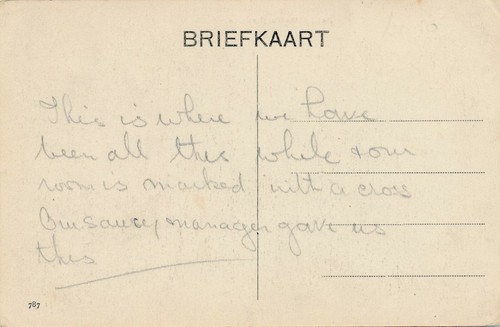 BRIEFKAART
This is where we have
been all this while & our
room is marked with a cross
Our saucy manager gave us
this
787